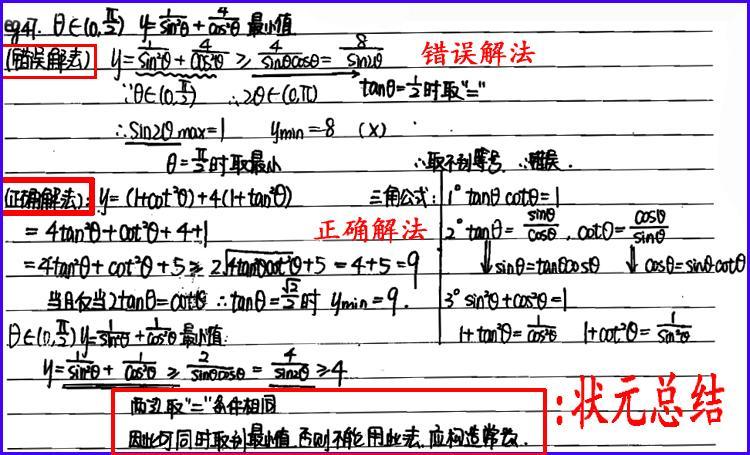 eg47. θ∈(0,π/2) y=1/sin²θ+4/cos²θ 最小值
(错误解法) y=1/sin²θ+4/cos²θ≥4/sinθcosθ=8/sin2θ 错误解法
∵θ∈(0,π/2) ∴2θ∈(0,π) tanθ=1/2时取"="
∴sin2θmax=1 ymin=8 (×)
θ=π/2时取最小 ∴取不到等号 ∴错误.
(正确解法): y=(1+cot²θ)+4(1+tan²θ) 三角公式: 1° tanθcotθ=1
=4tan²θ+cot²θ+4+1 正确解法 2° tanθ=sinθ/cosθ, cotθ=cosθ/sinθ
=4tan²θ+cot²θ+5≥2√4tan²θcot²θ+5=4+5=9 ⇓sinθ=tanθcosθ ⇓cosθ=sinθcotθ
当且仅当2tanθ=cotθ ∴tanθ=√2/2时 ymin=9. 3° sin²θ+cos²θ=1
θ∈(0,π/2) y=1/sin²θ+1/cos²θ最小值: 1+tan²θ=1/cos²θ 1+cot²θ=1/sin²θ
y=1/sin²θ+1/cos²θ≥2/sinθcosθ=4/sin2θ≥4
两边取"="条件相同
因此可同时取到最小值.否则不能用此法.应构造常数.
:状元总结